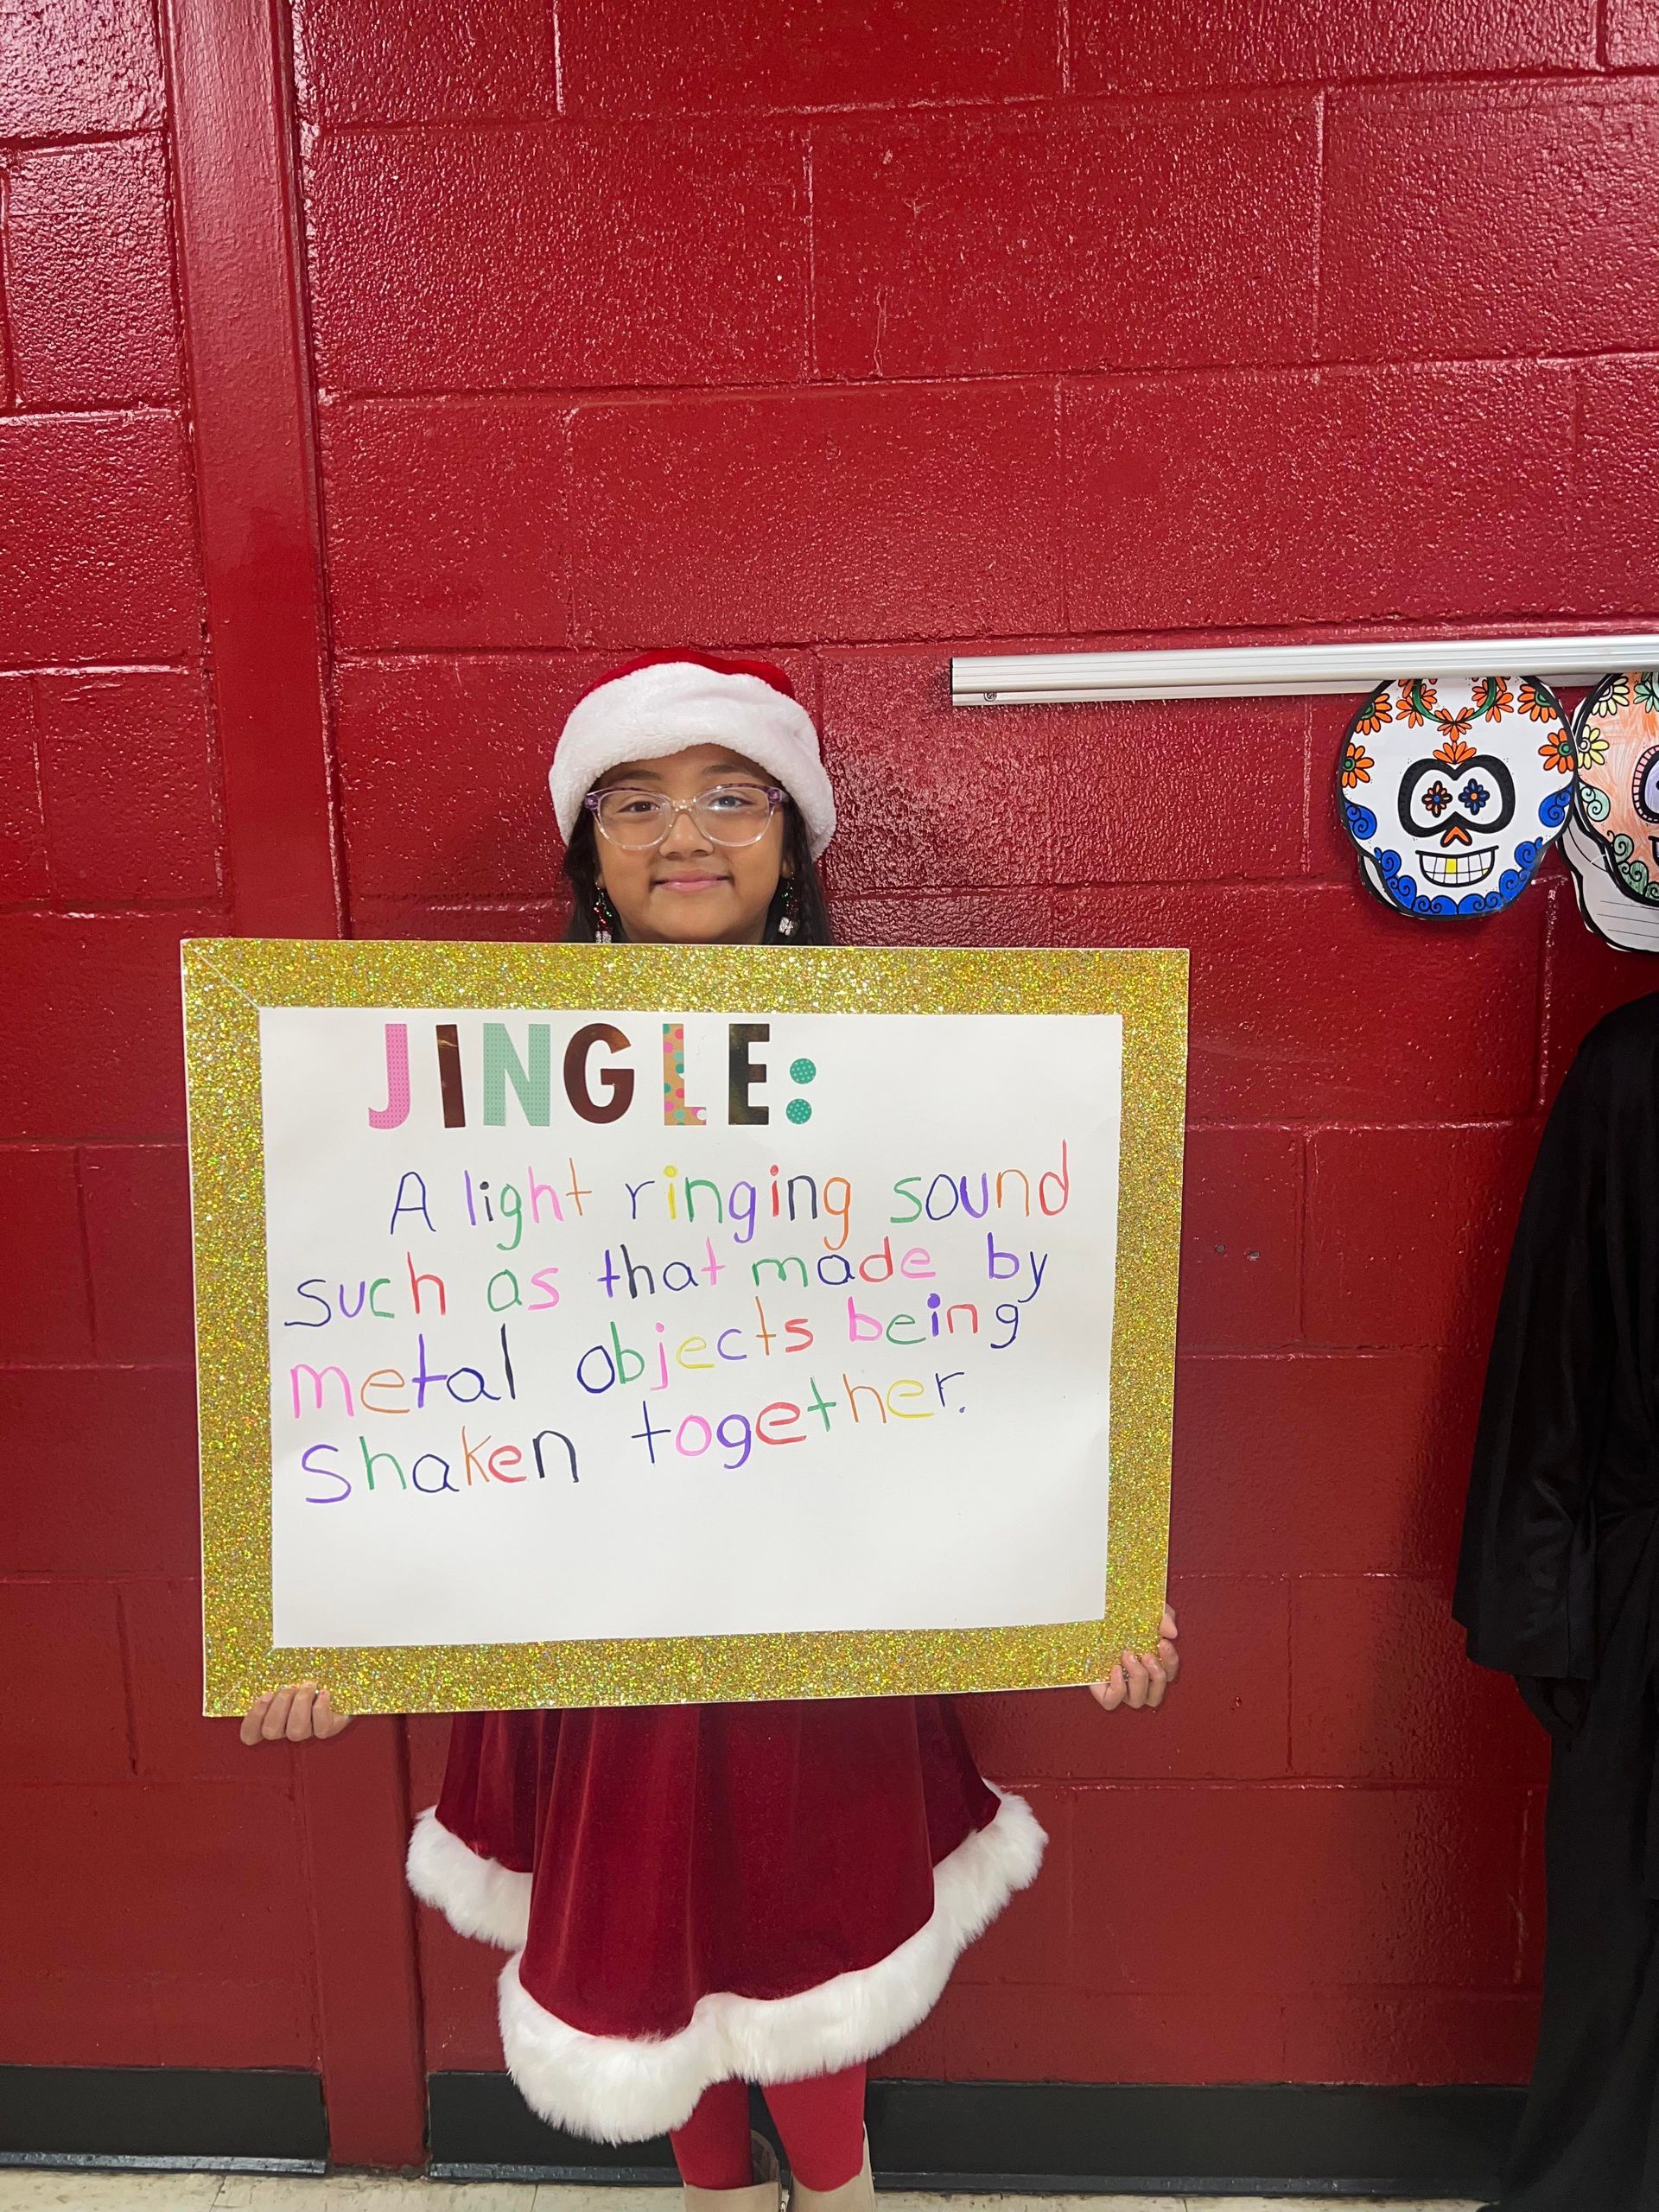 JINGLE:
A light ringing sound
such as that made by
metal objects being
Shaken together.